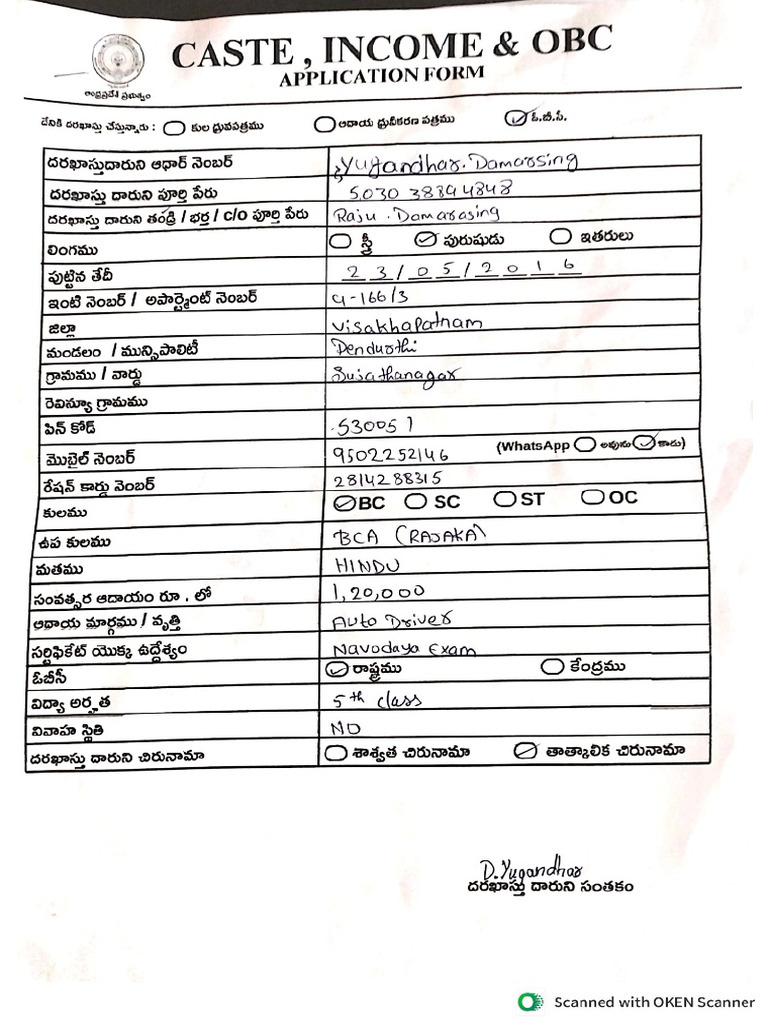 CASTE , INCOME & OBC
APPLICATION FORM
ఆంధ్రప్రదేశ్ ప్రభుత్వం
దేనికి దరఖాస్తు చేస్తున్నారు : కుల ధ్రువపత్రము ఆదాయ ధ్రువీకరణ పత్రము ఓ.బి.సి.
దరఖాస్తుదారుని ఆధార్ నెంబర్ Yugandhar. Damarsing
దరఖాస్తు దారుని పూర్తి పేరు 5030 3889 4848
దరఖాస్తు దారుని తండ్రి / భర్త / c/o పూర్తి పేరు Raju . Damarasing
లింగము స్త్రీ పురుషుడు ఇతరులు
పుట్టిన తేదీ 23/05/2016
ఇంటి నెంబర్ / అపార్ట్మెంట్ నెంబర్ 4-166/3
జిల్లా Visakhapatnam
మండలం / మున్సిపాలిటీ Pendurthi
గ్రామము / వార్డు Sujathanagar
రెవిన్యూ గ్రామము
పిన్ కోడ్ .530051
మొబైల్ నెంబర్ 9502252146 (WhatsApp అవును కాదు)
రేషన్ కార్డు నెంబర్ 2814288315
కులము BC SC ST OC
ఉప కులము BCA (RAJAKA)
మతము HINDU
సంవత్సర ఆదాయం రూ . లో 1,20,000
ఆదాయ మార్గము / వృత్తి Auto Driver
సర్టిఫికేట్ యొక్క ఉద్దేశ్యం Navodaya Exam
ఓబీసీ రాష్ట్రము కేంద్రము
విద్యా అర్హత 5th class
వివాహ స్థితి NO
దరఖాస్తు దారుని చిరునామా శాశ్వత చిరునామా తాత్కాలిక చిరునామా
D.Yugandhar
దరఖాస్తు దారుని సంతకం
Scanned with OKEN Scanner